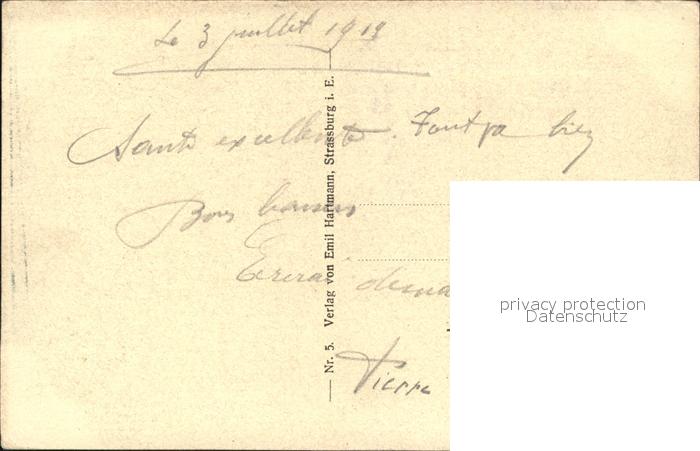 Le 3 juillet 1919
Santé excellente. Tout va bien
Bons baisers
Ecrirai dema
Pierre
Nr. 5. Verlag von Emil Hartmann, Strassburg i. E.
privacy protection
Datenschutz